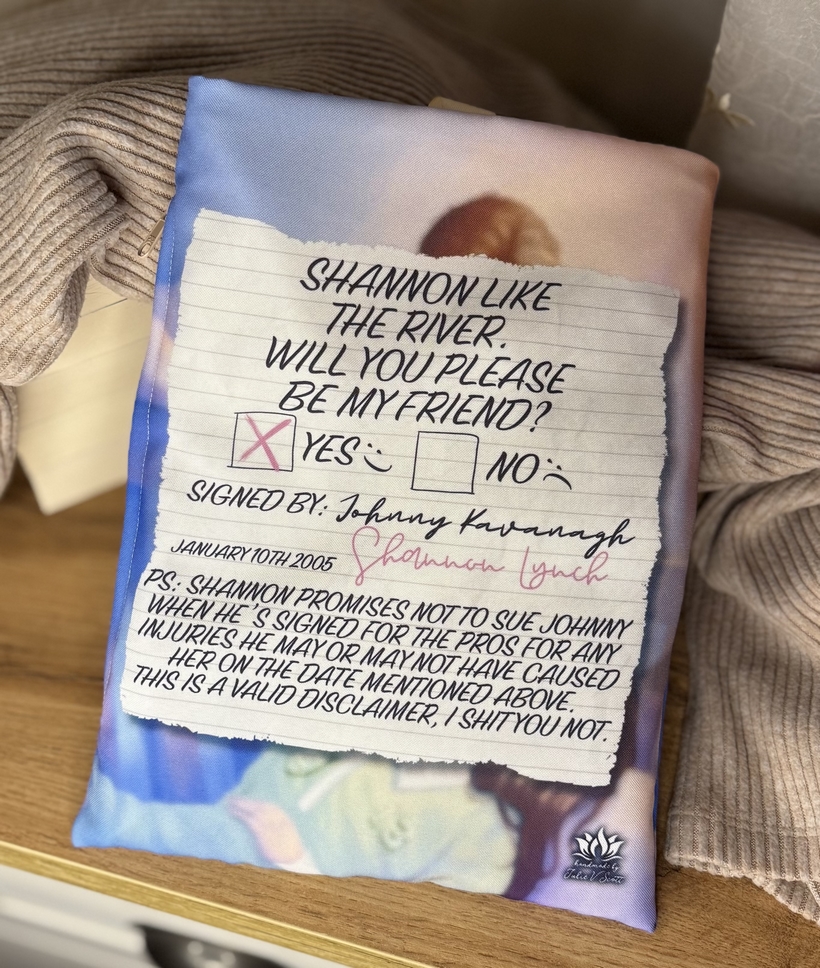 SHANNON LIKE
THE RIVER.
WILL YOU PLEASE
BE MY FRIEND?
X YES NO
SIGNED BY: Johnny Kavanagh
JANUARY 10TH 2005 Shannon Lynch
PS: SHANNON PROMISES NOT TO SUE JOHNNY
WHEN HE 'S SIGNED FOR THE PROS FOR ANY
INJURIES HE MAY OR MAY NOT HAVE CAUSED
HER ON THE DATE MENTIONED ABOVE.
THIS IS A VALID DISCLAIMER, I SHIT YOU NOT.
handmade by
Julie V.